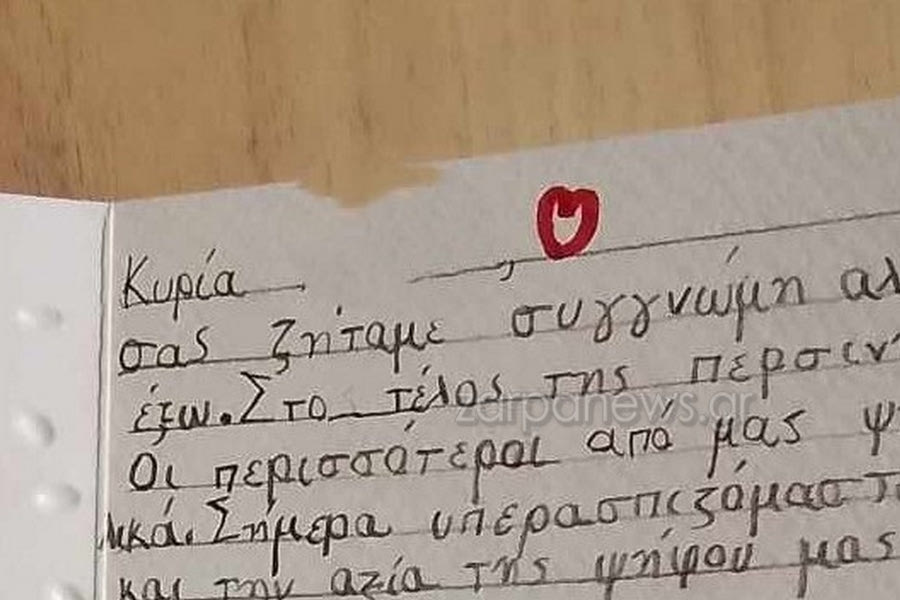 Κυρία ,
σας ζητάμε συγγνώμη αλ
έξω. Στο τέλος της περσιν
zarpanews.gr
Οι περισσότεροι από μας ψ
λικά. Σήμερα υπερασπιζόμαστ
και την αξία της ψήφου μας